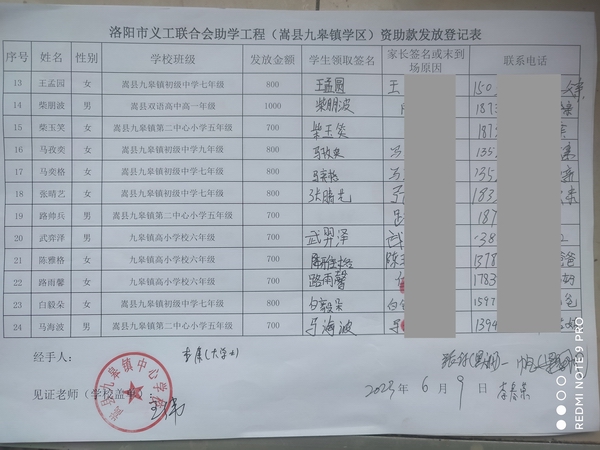 洛阳市义工联合会助学工程（嵩县九皋镇学区）资助款发放登记表
序号 姓名 性别 学校班级 发放金额 学生领取签名 家长签名或未到场原因 联系电话
13 王孟园 女 嵩县九皋镇初级中学七年级 800 王孟园 王 150
14 柴朋波 男 嵩县双语高中高一年级 1000 柴朋波 187
15 柴玉笑 女 嵩县九皋镇第二中心小学五年级 700 柴玉笑 187
16 马孜奕 女 嵩县九皋镇初级中学九年级 800 马孜奕 马 135
17 马奕格 女 嵩县九皋镇初级中学七年级 800 马奕格 135
18 张晴艺 女 嵩县九皋镇初级中学七年级 800 183
19 路帅兵 男 嵩县九皋镇第二中心小学六年级 700 187
20 武弈泽 男 九皋镇高小学校六年级 700 武羿泽 武 38
21 陈雅格 女 九皋镇高小学校六年级 700 陈雅格 陈 1378
22 路雨馨 女 九皋镇高小学校六年级 700 路雨馨 1783
23 白毅朵 女 嵩县九皋镇初级中学七年级 800 白毅朵 白 1597
24 马海波 男 嵩县九皋镇第二中心小学五年级 700 马海波 马 1394
经手人： (大学士)
见证老师（学校盖章）
嵩县九皋镇中心学校
2023年 6 月 9 日
REDMI NOTE 9 PRO